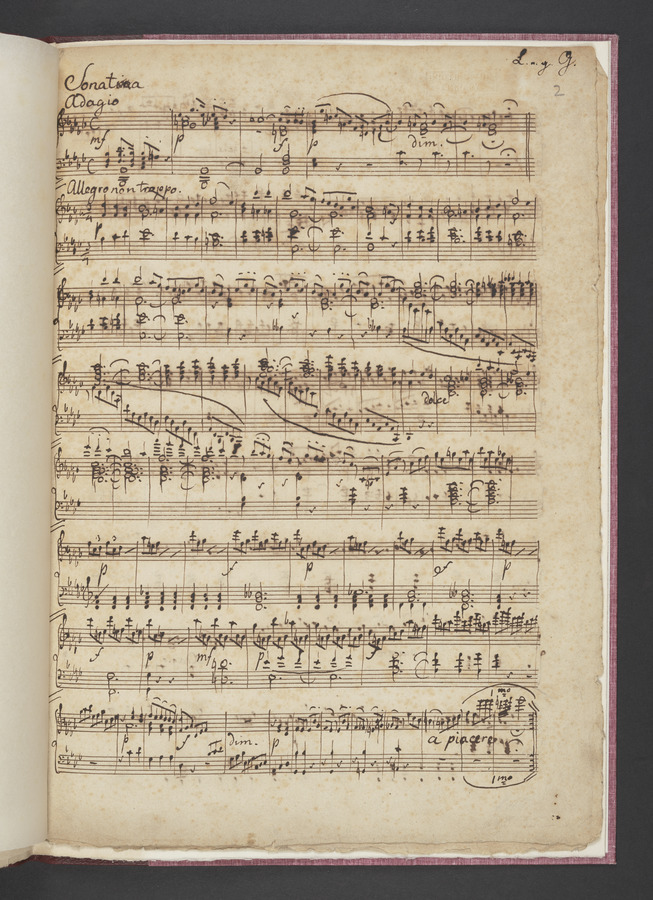 L. v. G.
2
Sonatina
Adagio
mf p sf p dim.
Allegro non troppo.
dolce
p sf p sf p
sf p mf p sf
1mo
p sf dim. a piacere
1mo